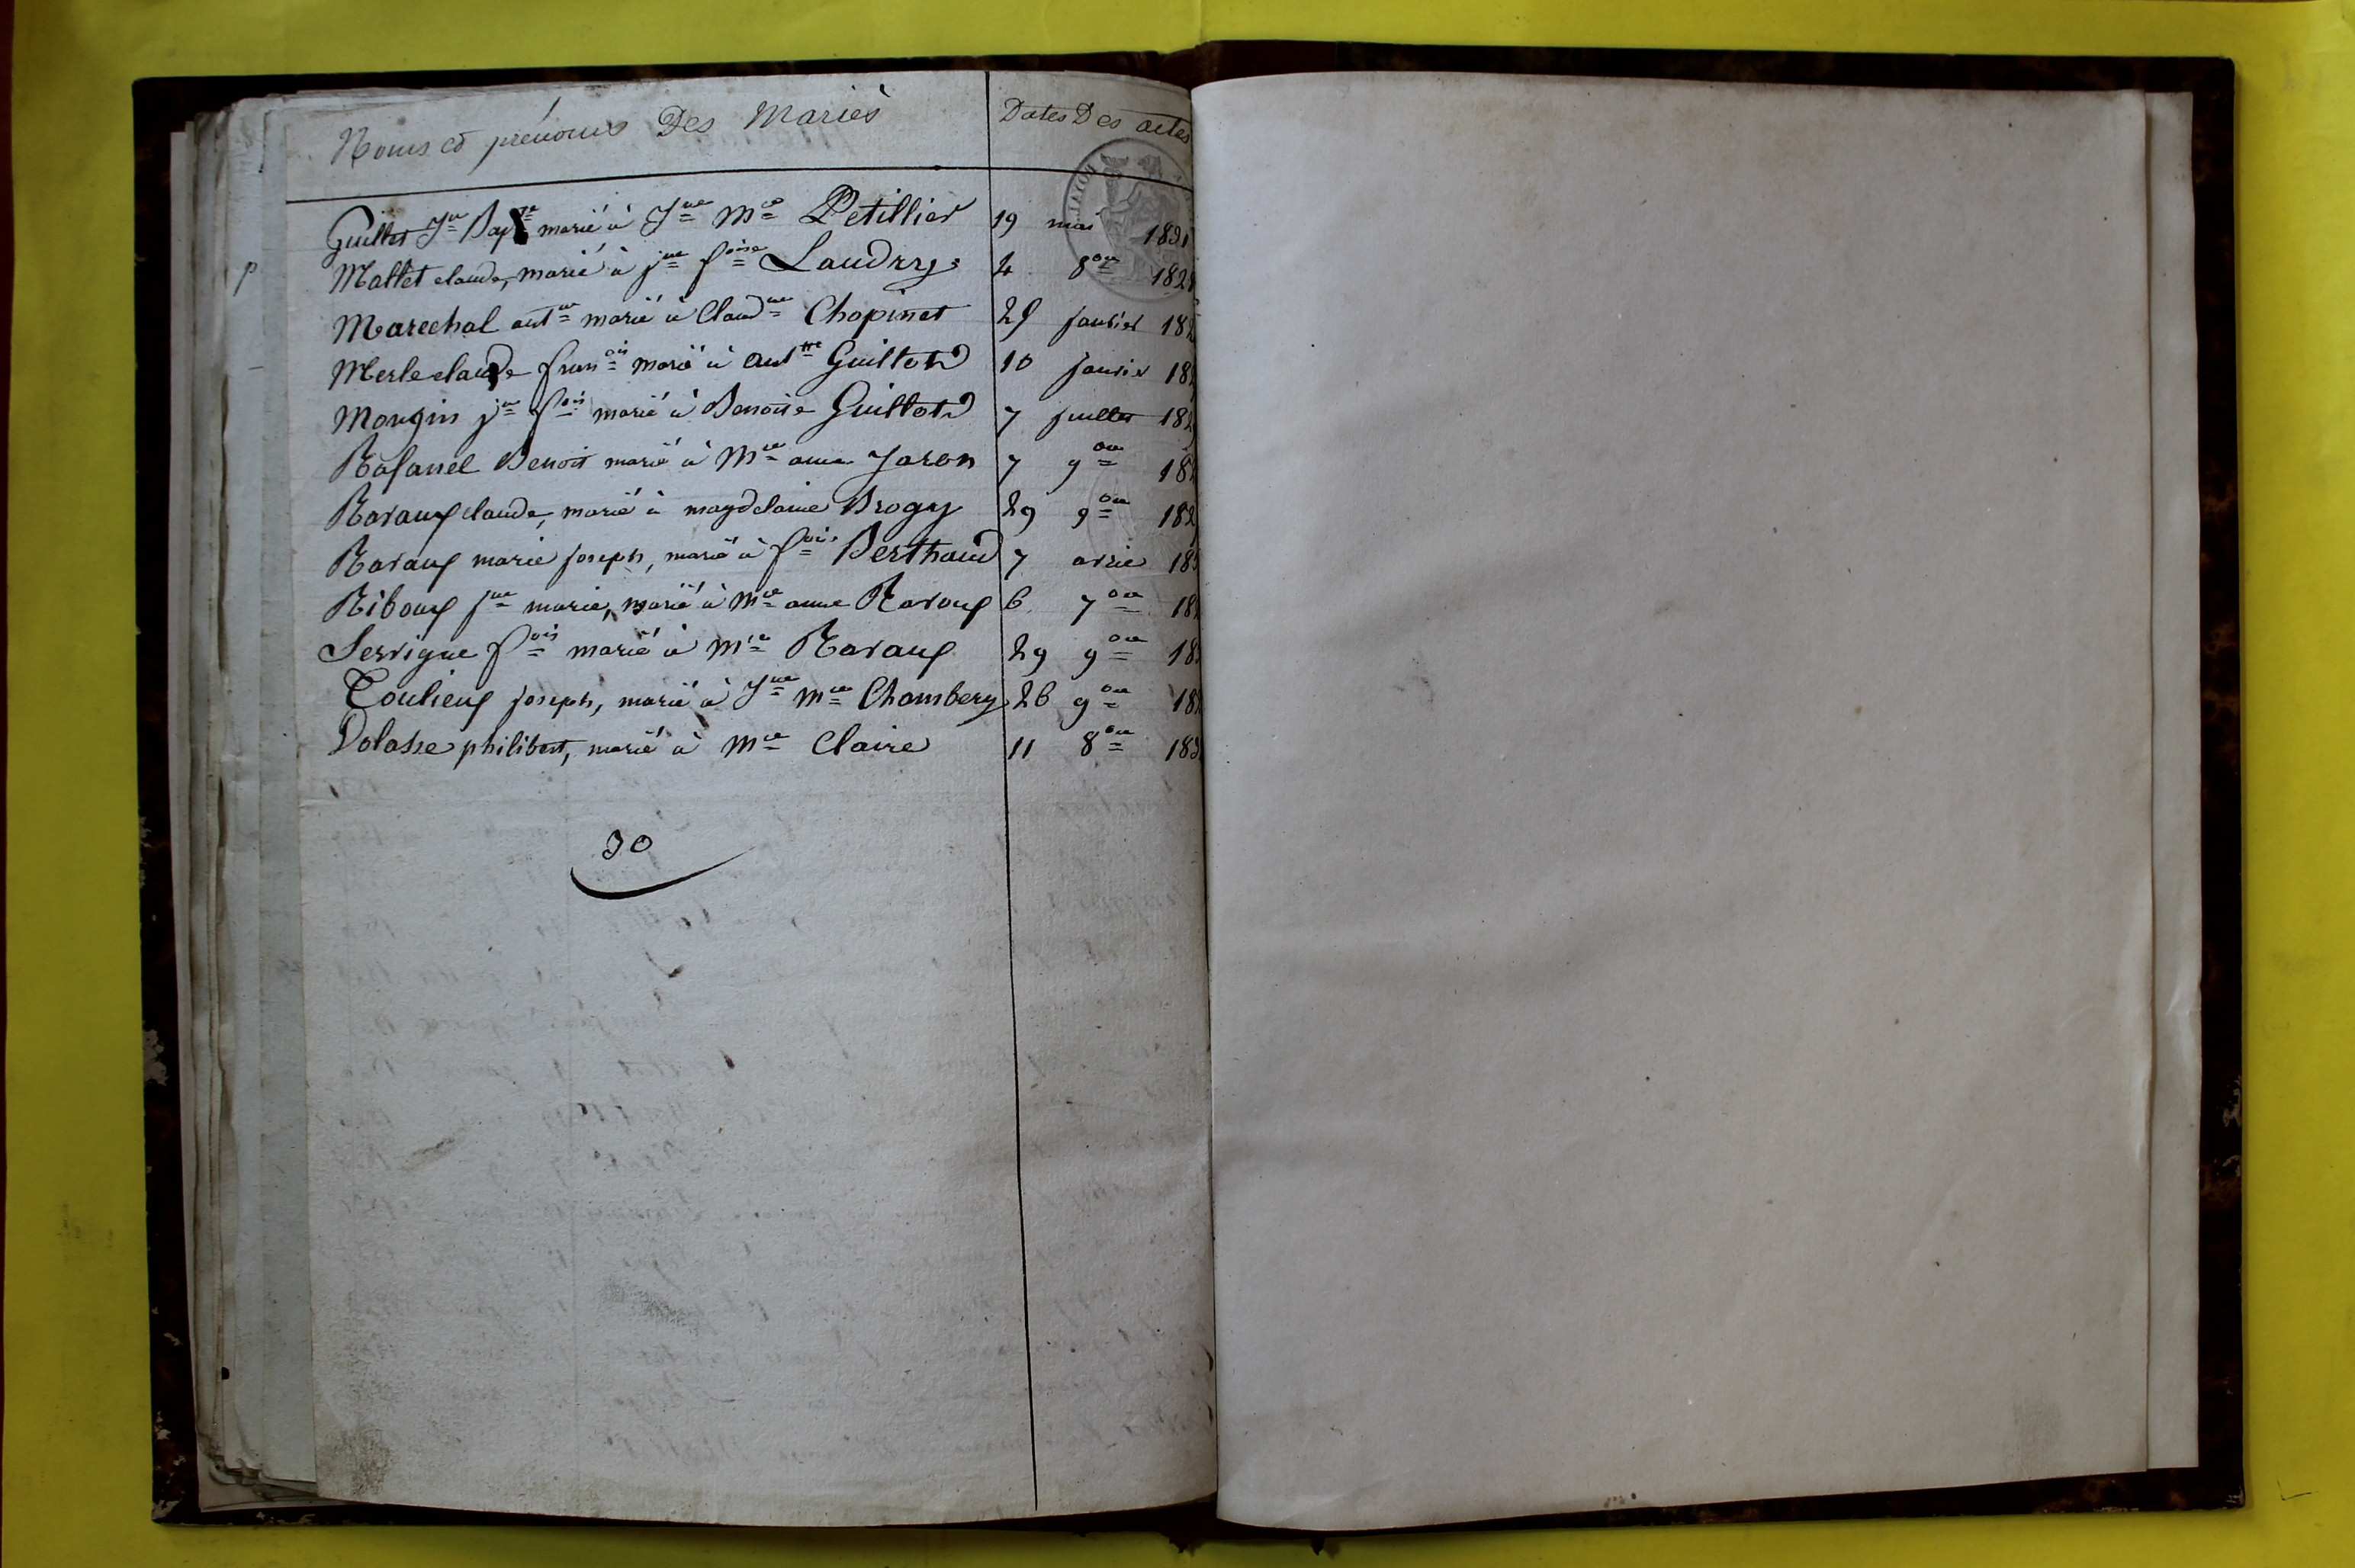 Noms et prénoms Des Mariés Dates Des actes
Guillot Jn Bapte marié à Jne Mie Petillier 19 mai 1831
p Mallet claude, marié à jne foise Laudry 4 8bre 182
Marechal antne marié à Claudne Chopinet 25 janvier 18
Merle claude franois marié à anttte Guillot 10 janvier 18
Mongin jn fois marié à Benoite Guillot 7 juillet 182
Rafanel Benoit marié à Mie anne Jaron 7 9bre 18
Ravaux claude, marié à magdelaine Brogy 29 9bre 182
Ravaux marie joseph, marié à fois Berthaud 7 avril 18
Riboux jn marie, marié à Mie anne Ravoux 6 7bre 18
Serrigne fois marié à Mie Ravaux 29 9bre 18
Toulieux joseph, marié à Jne Mie Chambery 26 9bre 18
Dolasse philibert, marié à Mie Claire 11 8bre 183
30